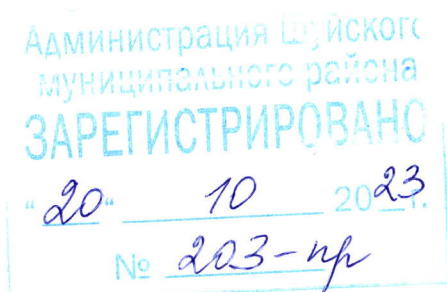 Администрация Шуйского
муниципального района
ЗАРЕГИСТРИРОВАНО
"20" 10 2023г.
№ 203-пр